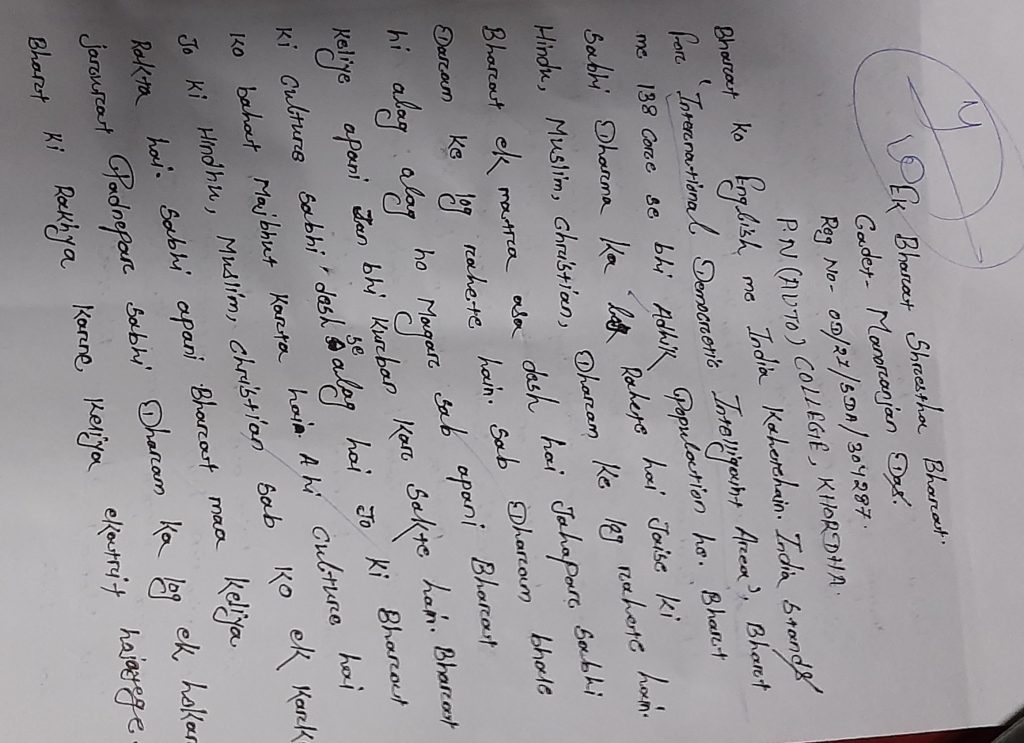 Ek Bharat Shrestha Bharat.
Cadet- Manoranjan Das.
Reg No- OD/27/SDA/304287.
P.N (AUTO) COLLEGE, KHORDHA.
Bharat ko English me India Kahetehain. India stands
for 'International Democratic Intelligaint Area), Bharat
me 138 Caroe se bhi Adhik Population he. Bharat
Sabhi Dharma ka Rahete hai Jaise ki
Hindu, Muslim, Christian, Dharam ke log rahete hain.
Bharat ek matra asa desh hai Jahapar Sabhi
Daram ke log rahete hain. Sab Dharam bhale
hi alag alag ho Magar sab apani Bharat
Keliye apani Jan bhi Kurban Kar Sakte hain. Bharat
Ki Culture Sabhi desh se alag hai Jo ki Bharat
ko bahat Majbut Karta hain. Ahi Culture hai
Jo Ki Hindhu, Muslim, Christian sab ko ek Karke
Rakta hai. Sabhi apani Bharat maa Kelija
jarurat Padnepar sabhi Dharam ka log ek hokar
Bharat Ki Rakhya Karne Kelija ekatrit hojayege.